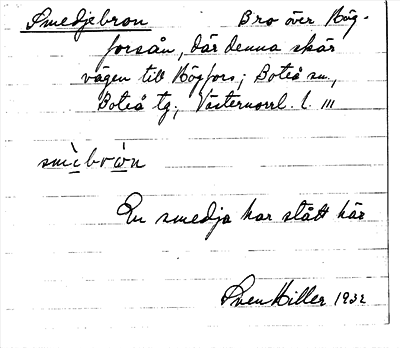 Smedjebron Bro över Hög-
forsån, där denna skär
vägen till Högfors; Boteå sn.,
Boteå tg; Västernorrl. l. III
smìbrὼn
En smedja har stått här
Sven Hiller 1932